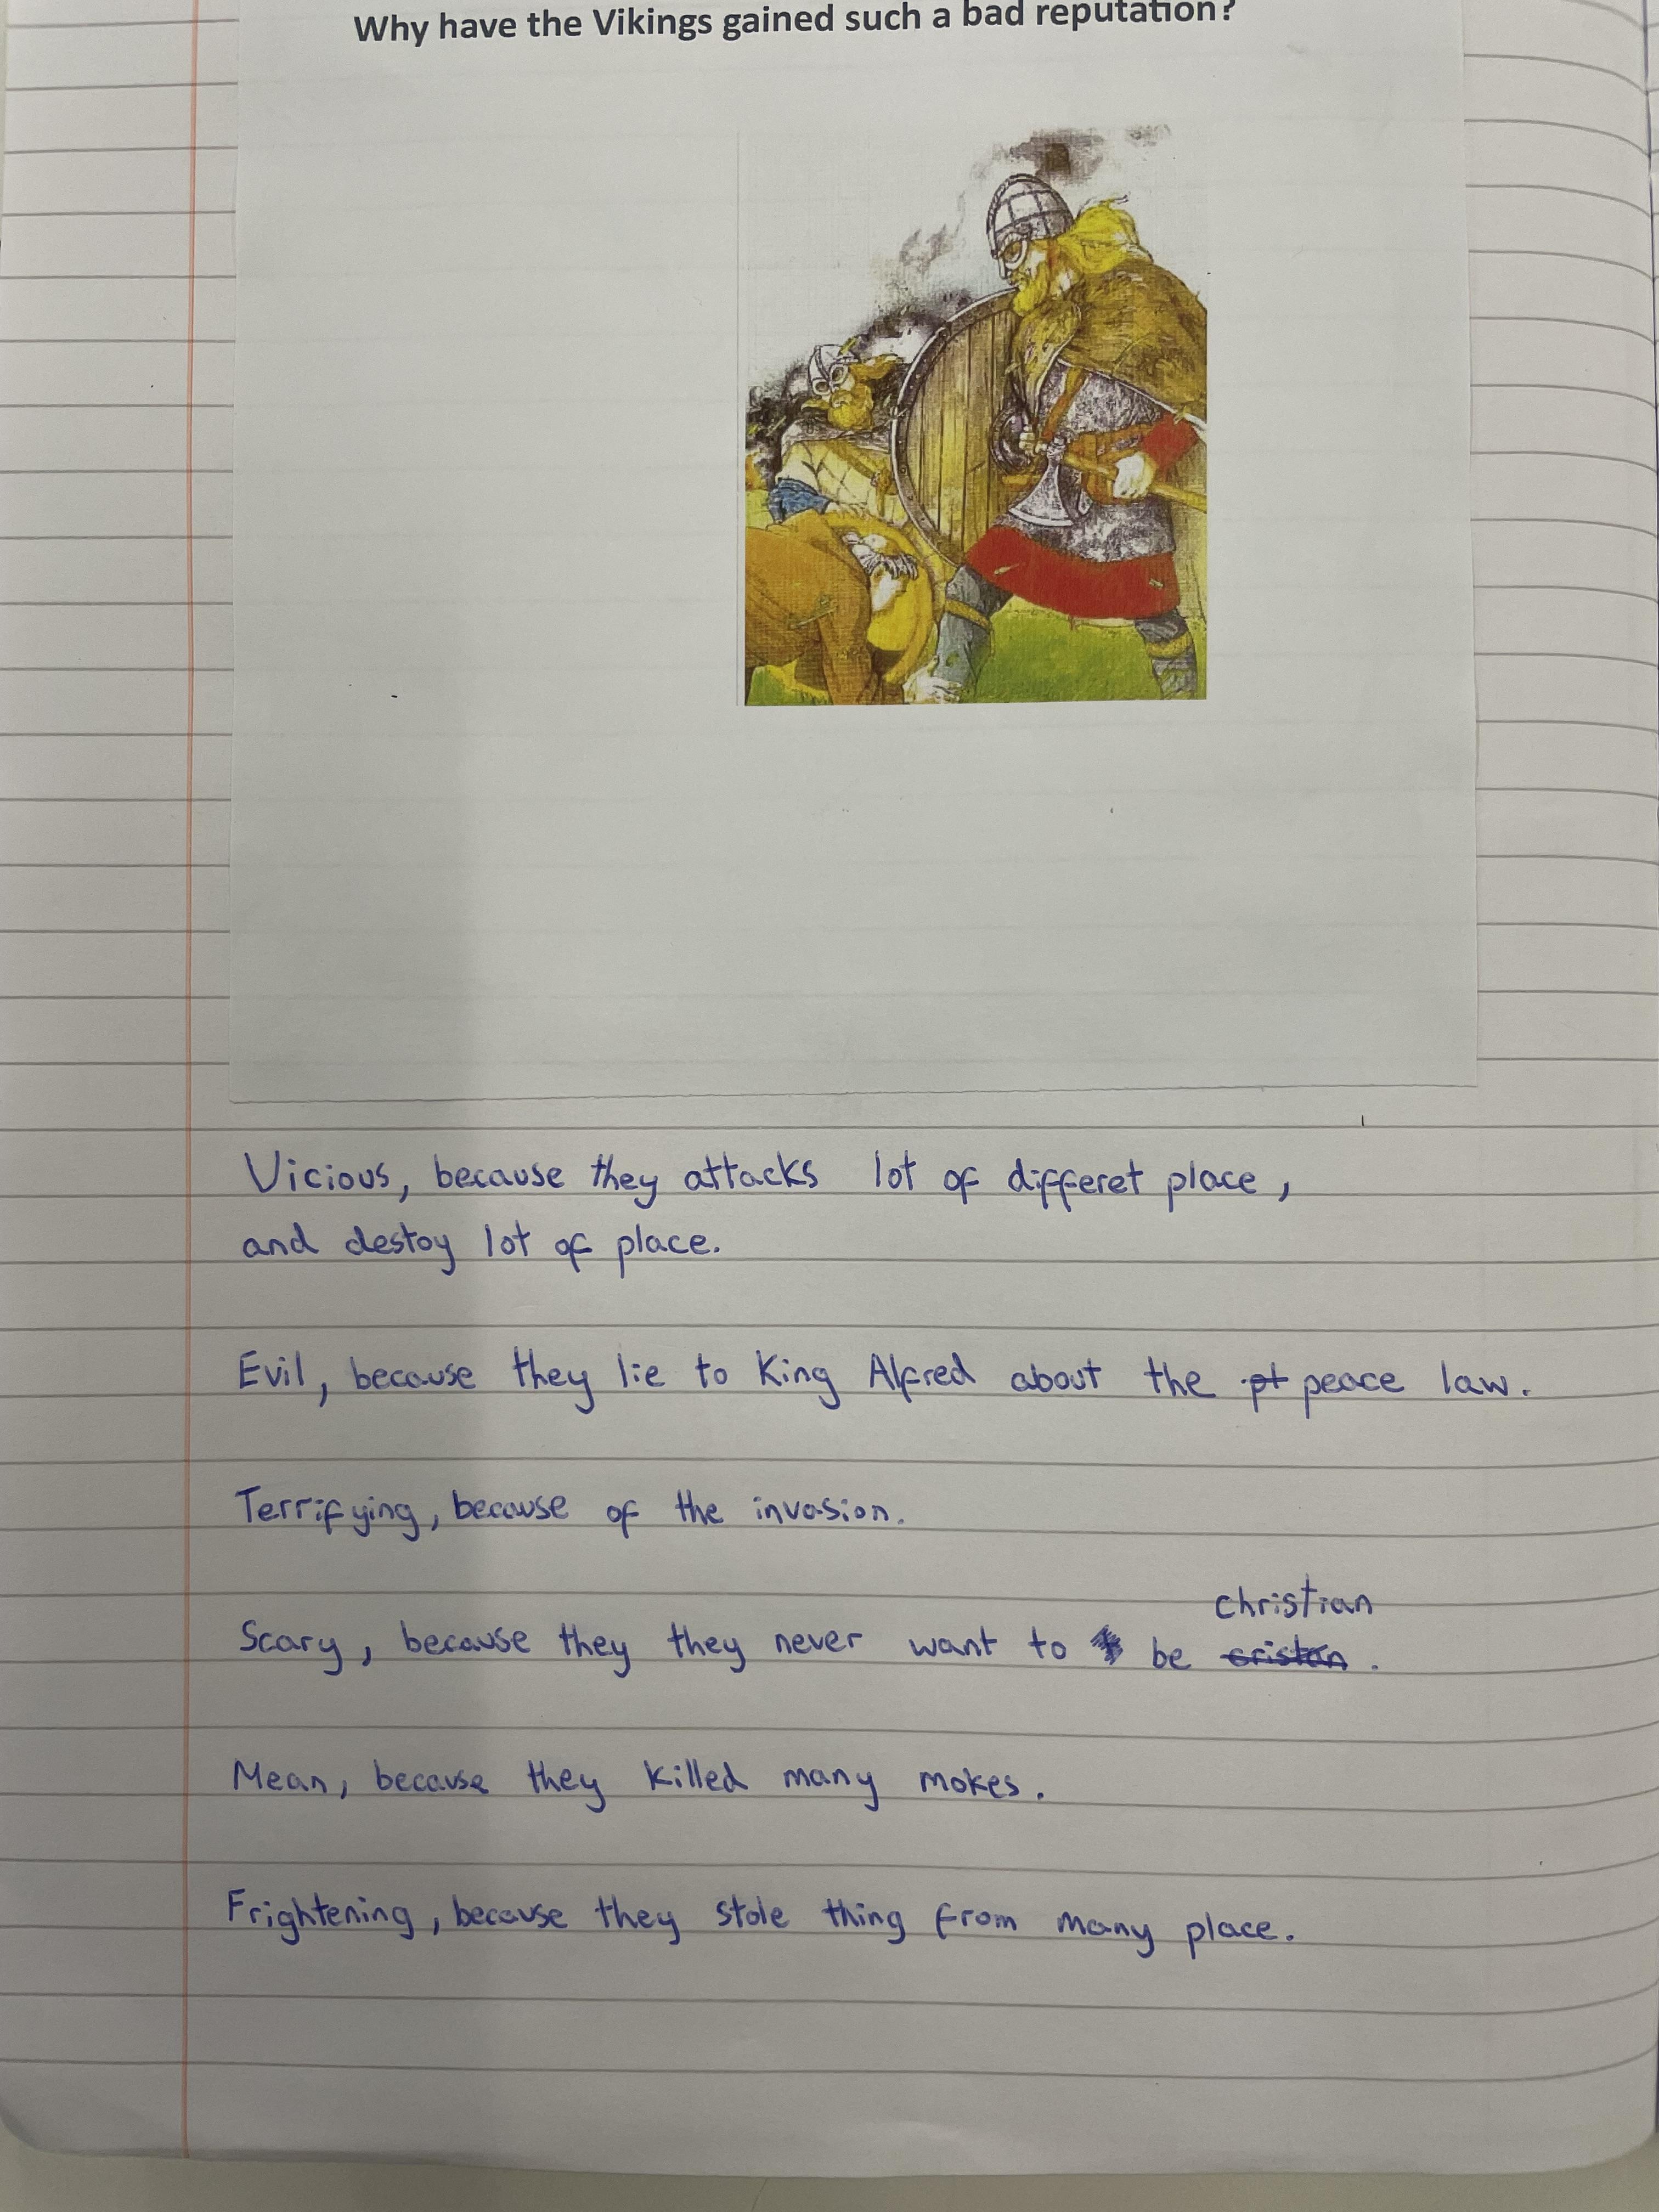 Why have the Vikings gained such a bad reputation?
Vicious, because they attacks lot of differet place,
and destoy lot of place.
Evil, because they lie to King Alfred about the pt peace law.
Terrifying, because of the invasion.
christian
Scary, because they they never want to be cristan.
Mean, because they killed many mokes.
Frightening, because they stole thing from many place.